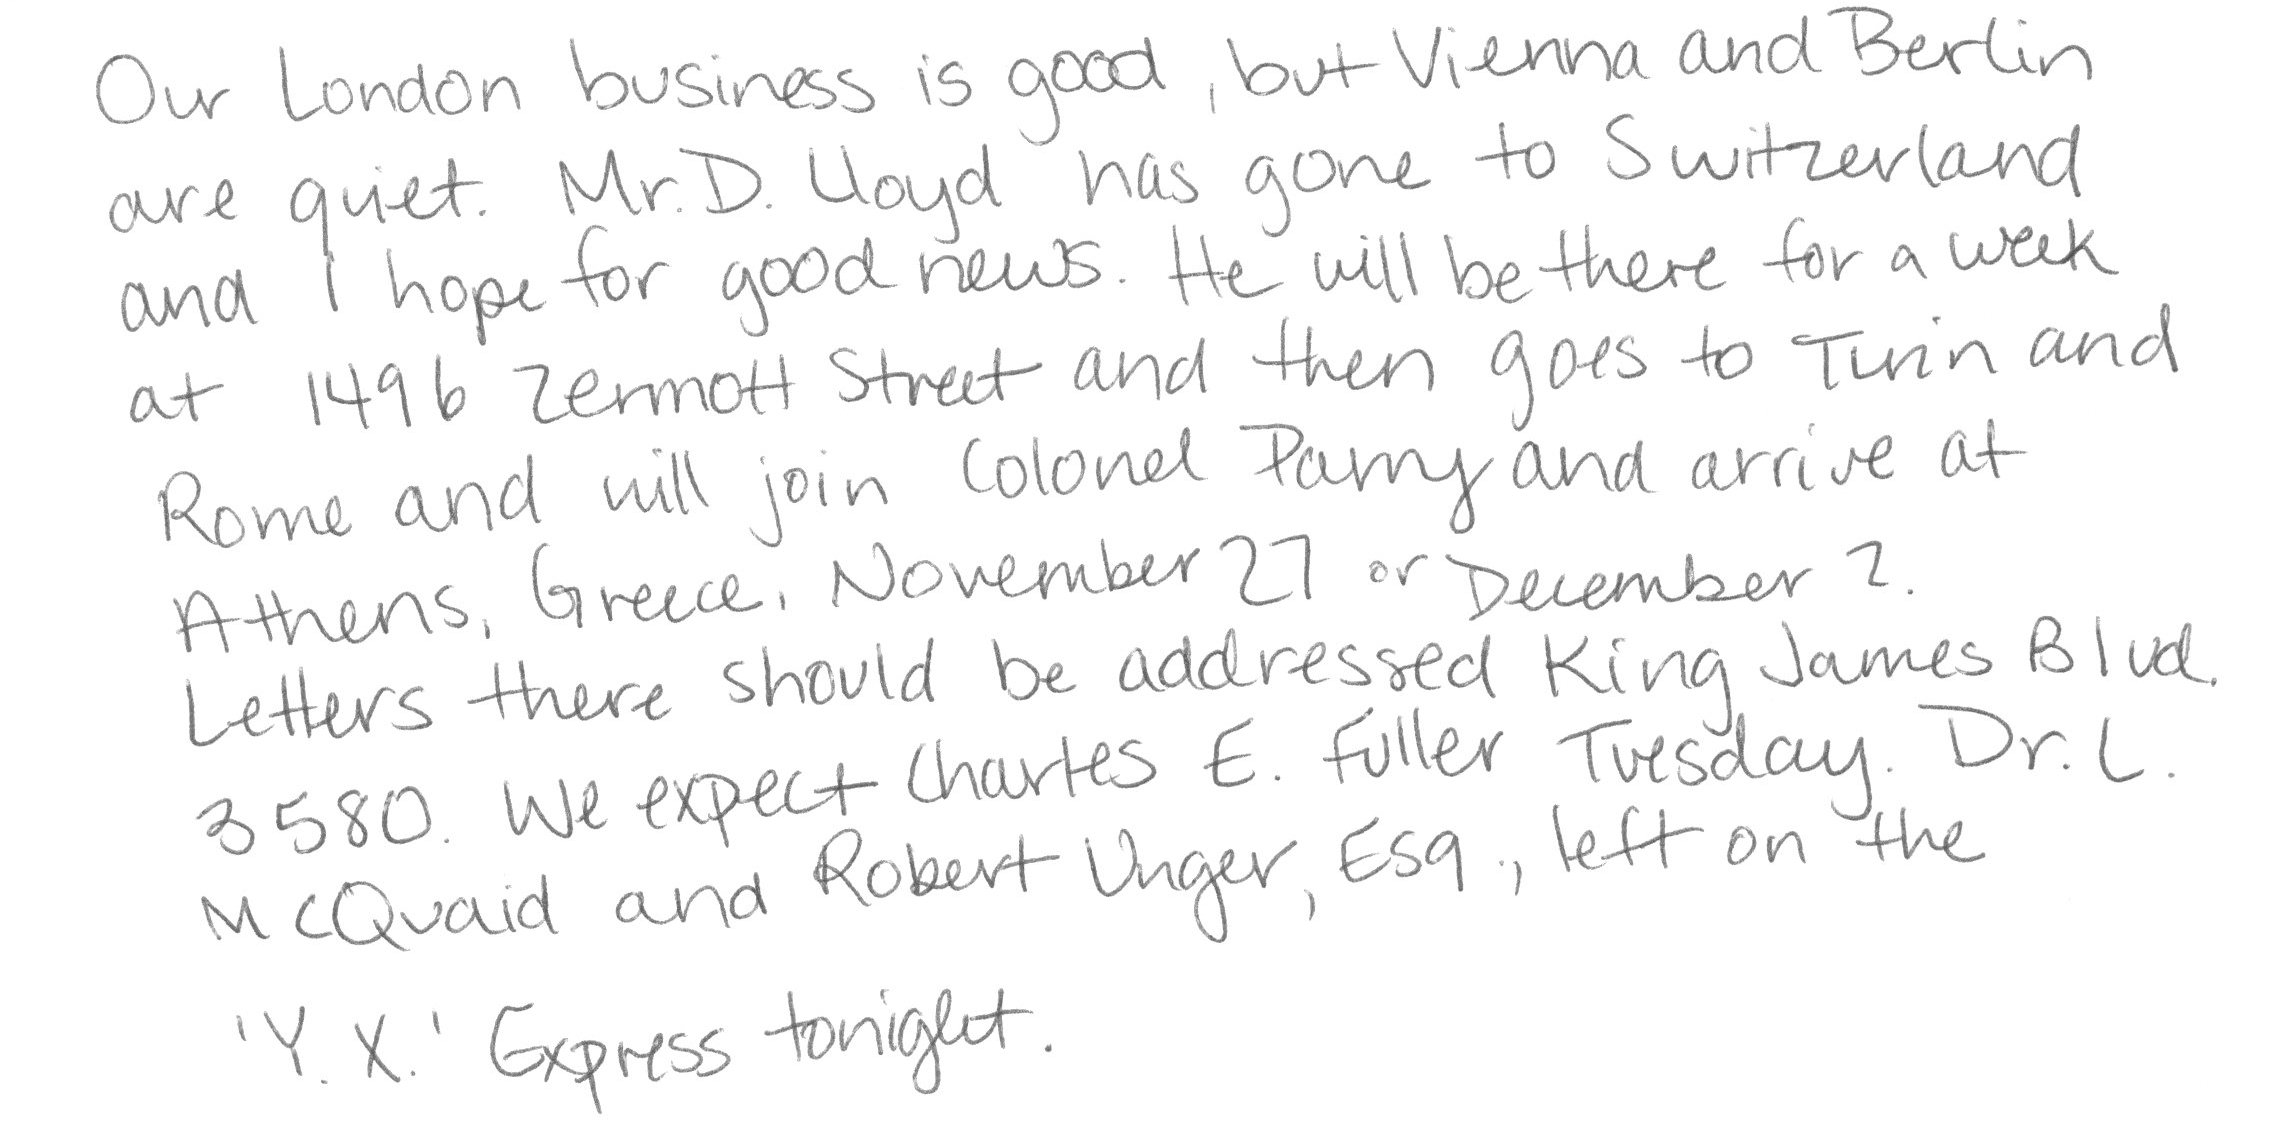 Our London business is good, but Vienna and Berlin
are quiet. Mr. D. Lloyd has gone to Switzerland
and I hope for good news. He will be there for a week
at 1496 Zermott Street and then goes to Turin and
Rome and will join Colonel Parry and arrive at
Athens, Greece, November 27 or December 2.
Letters there should be addressed King James Blvd.
3580. We expect Charles E. Fuller Tuesday. Dr. L.
McQuaid and Robert Unger, Esq., left on the
'Y. X.' Express tonight.